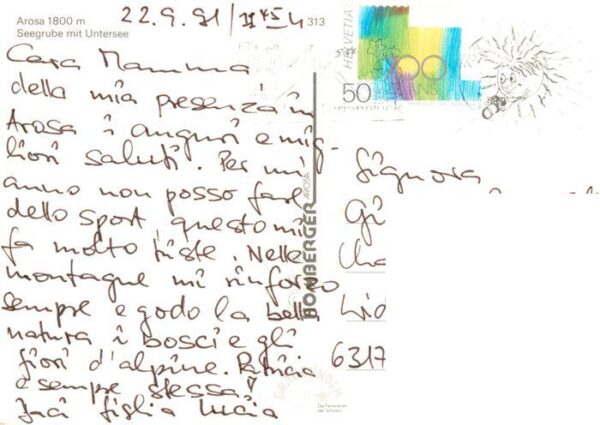 Arosa 1800 m
Seegrube mit Untersee
22.9.91/
313
Cara Mamma
della mia presenza in
Arosa i auguri e mig-
liori saluti. Per mi
anno non posso fare
dello sport, questo mi
fa molto triste. Nelle
montagne mi rinforzo
sempre e godo la bella
natura i bosci e gli
fiori d'alpine. Patricia
e sempre stessa
figlia Lucia
HELVETIA
50
700
BOMBERGER AROSA
Signora
Gi
Cha
6317